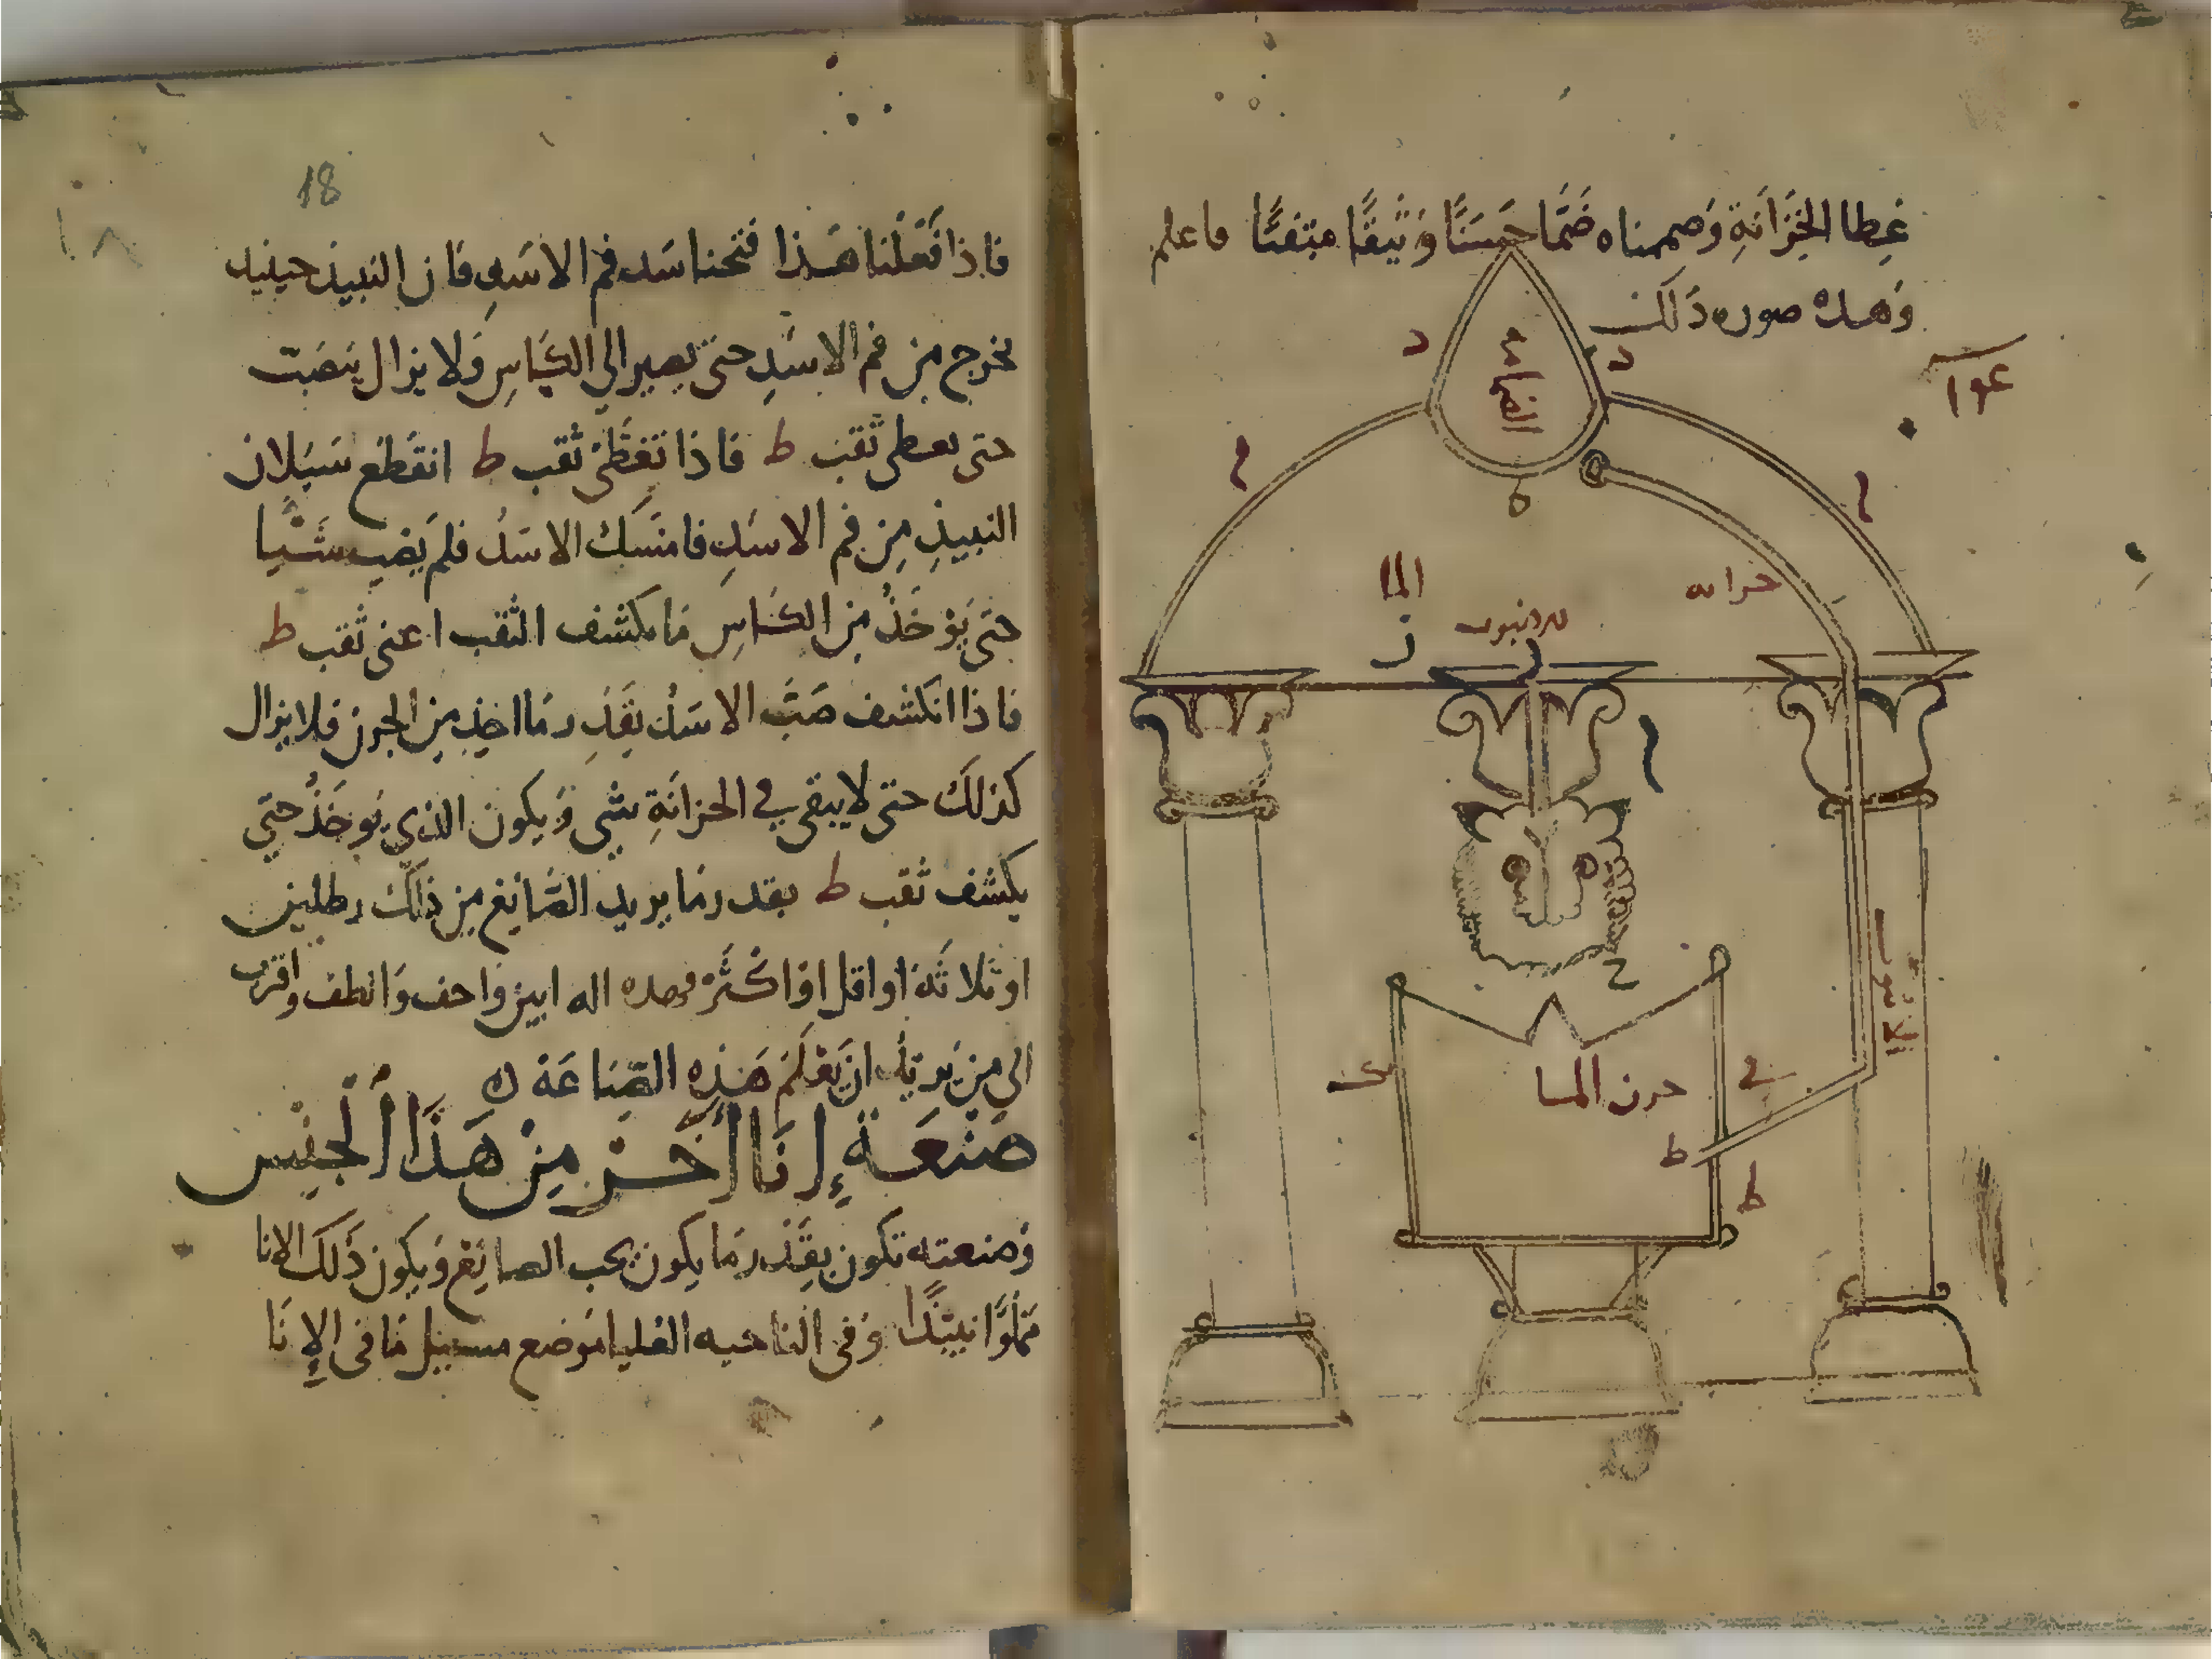 غِطا الخِزَانَةِ وَصممناه ضَمَّا حَسَنًا وَثيقًا متقنًا فاعلم
وَهده صوره دَلك
د
د
م
م
ه
الما
ز
خزانه
جرن الما
ط
ط
ح
18
١٨
فاذا فَعَلنا هَذا فتحنا سَد فم الاسَدِ فان النبيذ حينيد
يخرج من فم الاسَدِ حتى يصير الي الكَاسِ وَلا يزال ينصَبّ
حتى يعطى ثقب ط فاذا تغَطَّىْ ثقب ط انقَطع سَيَلان
النبيذِ مِن فم الاسَدِ فامتسَك الاسَدُ فلم يَصب شَيا
حتى يَوْخَذُ مِن الكاسِ مَا يكشف الثقب اعنى ثقب ط
فاذا انكشف صَبَّ الاسَدُ بقَدرِ مَا اخِذ مِن الجرن فلا يزال
كذلكَ حتى لا يبقى في الخزانَةِ شي وَيكون الذي يوخَذُ حتي
يكشف ثقب ط بقدر مَا يريد الصَّانِع مِن ذلك رطلين
او ثلاثَة او اقل او اكثَرْ فهده اله ابين واخف وَالطف واقرب
الي مِن يُريدُ ان يَعْلَمَ هَذِه الصِّنَاعَة
صَنعَةُ إِنَا أَخَرْ مِنْ هَذَا ٱلْجِنْسِ
وَصنعته تكون بقَدْر مَا يكون يحب الصانِع وَيكون ذَلكَ الانا
مَملوًا نبيذًا وَفى الناحيه العليا مَوضع مسيل مَا فى الإِنَا